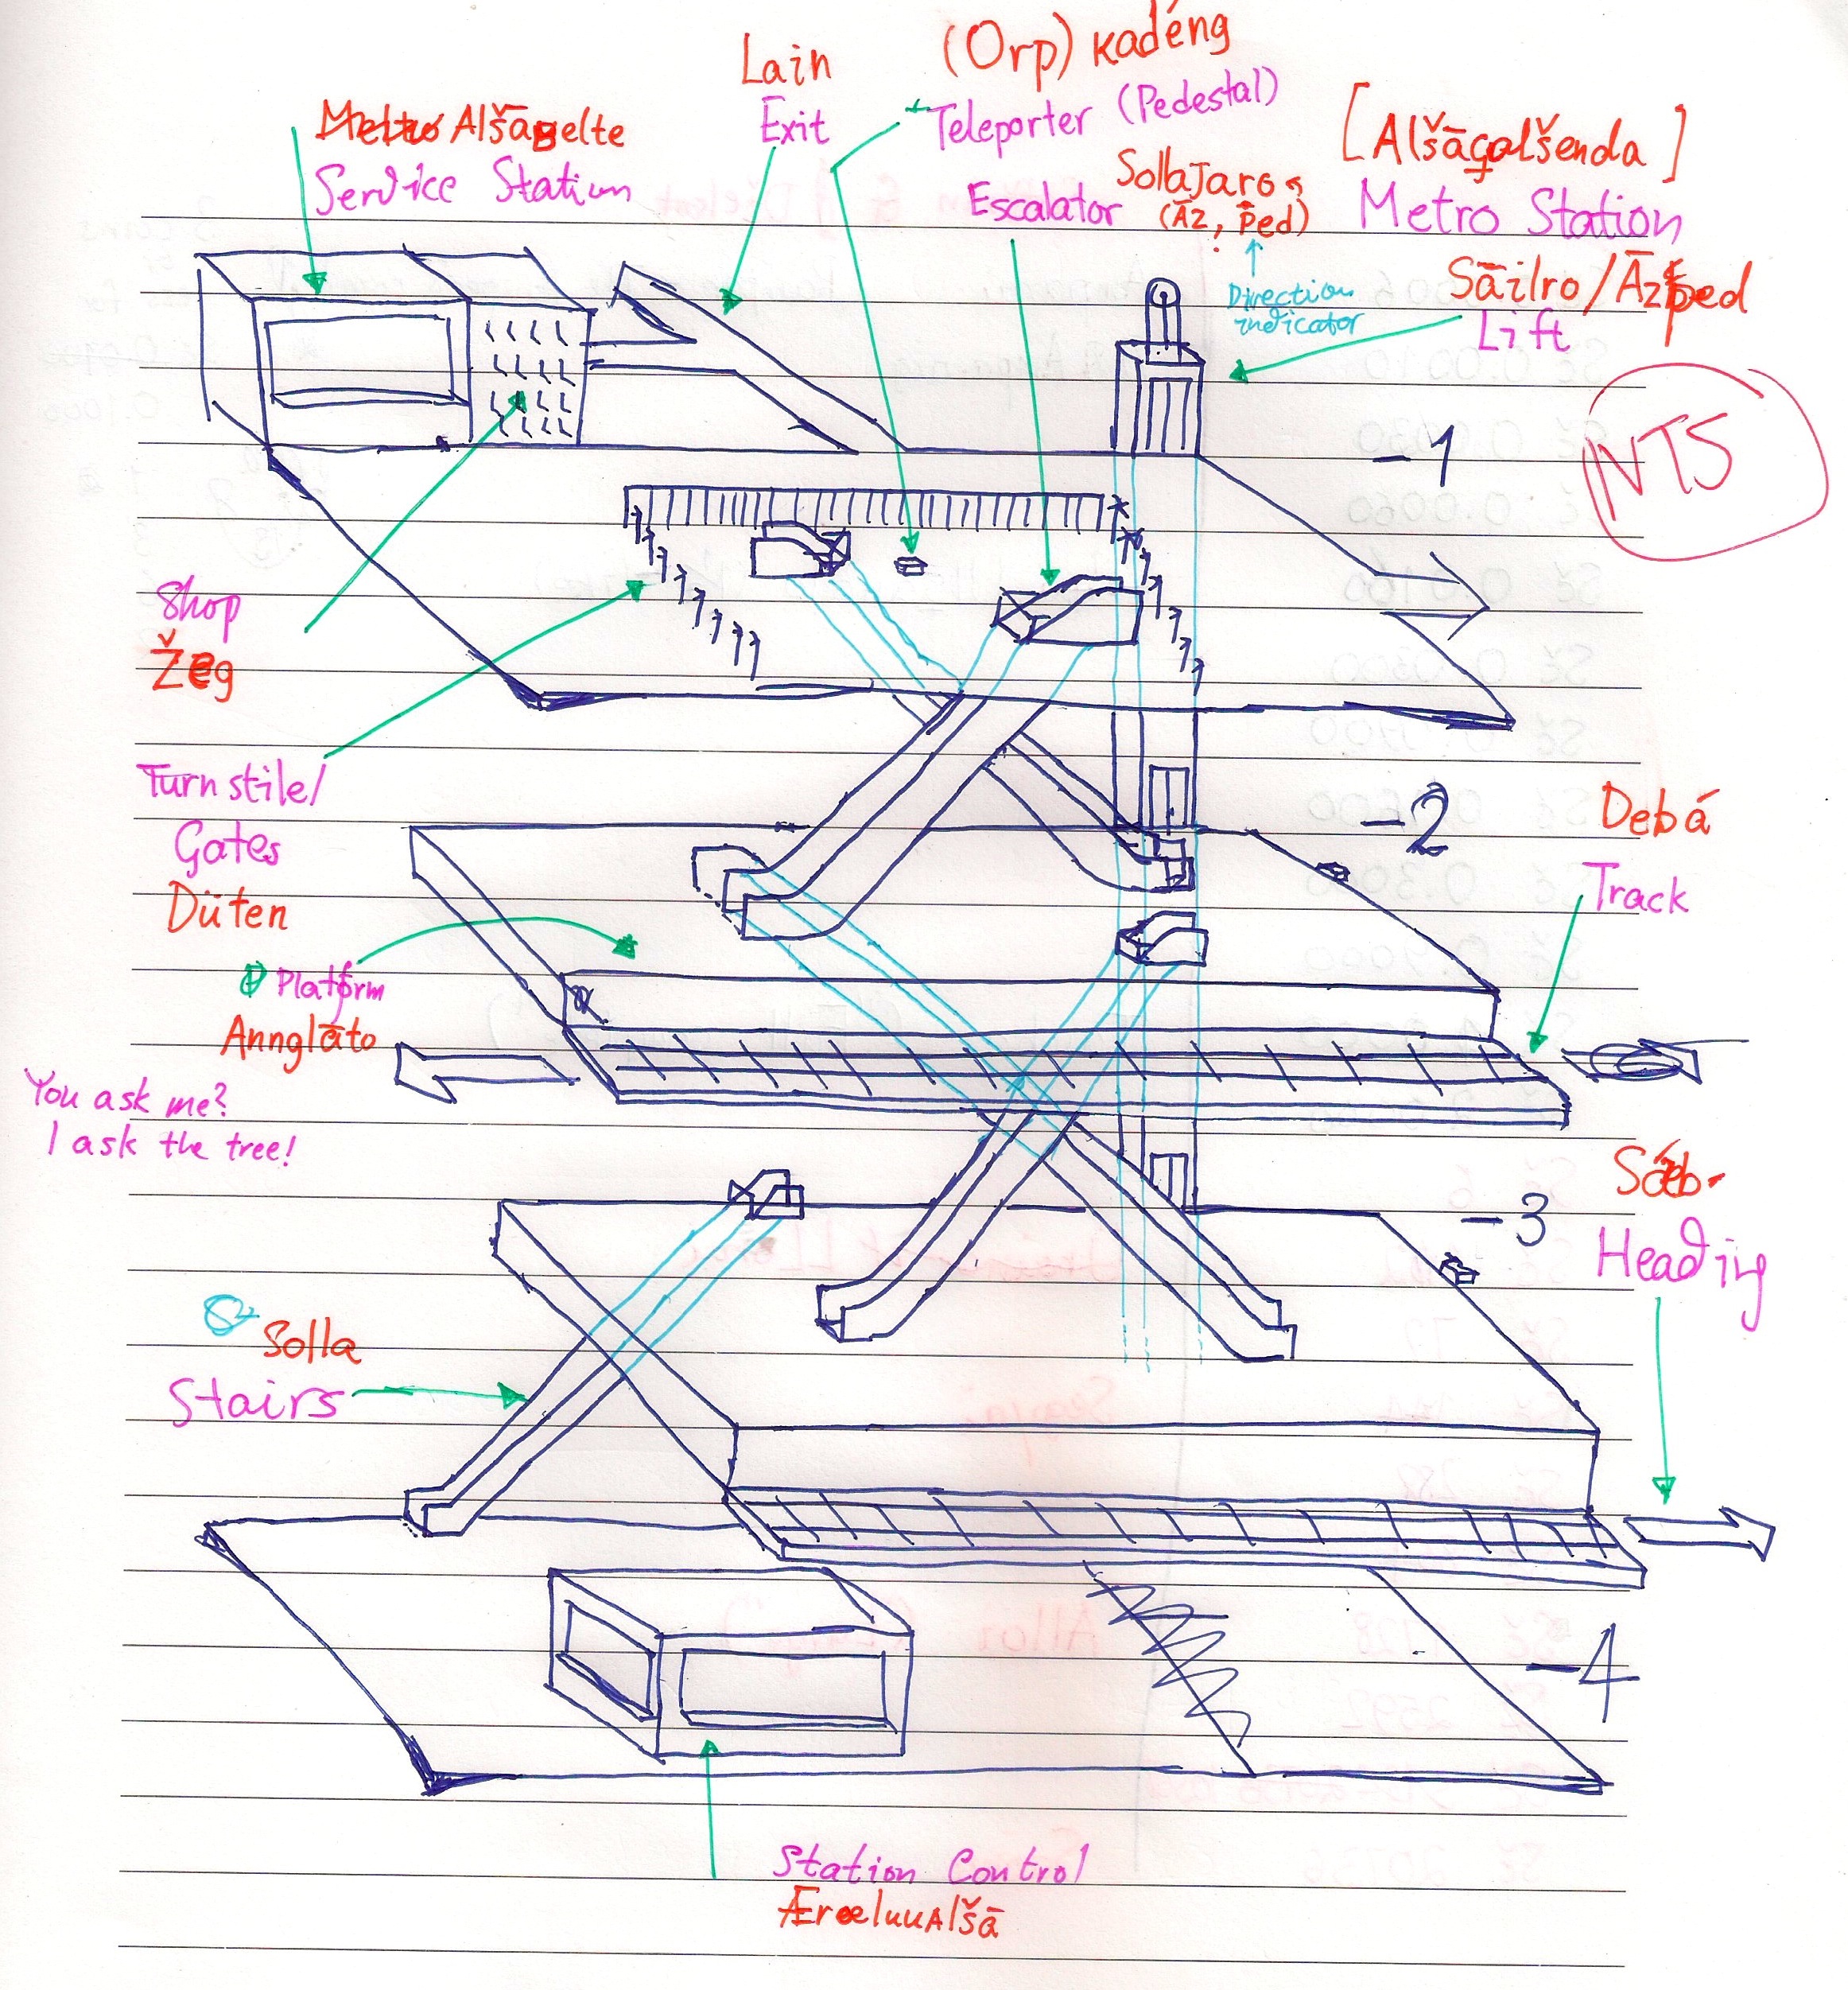 Lain
Exit
(Orp) Kadéng
Teleporter (Pedestal)
Metro Alšāgelte
Service Station
Escalator
Sollajaro
(Āz, Ped)
Direction
indicator
[Alšāgalšenda]
Metro Station
Sāilro/Āzped
Lift
NTS
-1
Shop
Žeg
Turnstile/
Gates
Düten
-2
Debá
Track
Platform
Annglāto
You ask me?
I ask the tree!
Heading
-3
Solla
Stairs
-4
Station Control
ÆroeluuAlšā